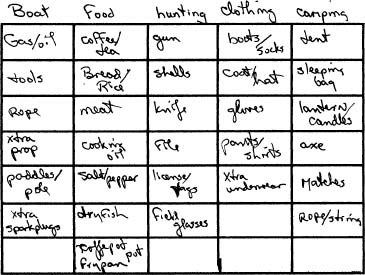 Boat Food hunting clothing camping
Gas/oil coffee/tea gun boots/socks tent
tools Bread/Rice shells coat/hat sleeping bag
Rope meat knife gloves lantern/candles
xtra prop cooking oil File pants/shirts axe
paddles/pole salt/pepper license/tags xtra underwear Matches
xtra sparkplugs dryfish Field glasses Rope/string
coffeepot pot Frypan